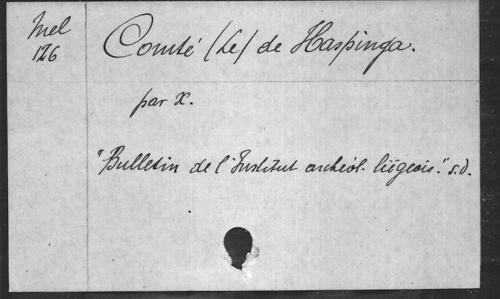 Mel
126
Comté (Le) de Haspinga.
par X.
"Bulletin de l'Institut archéol. liégeois." s.d.